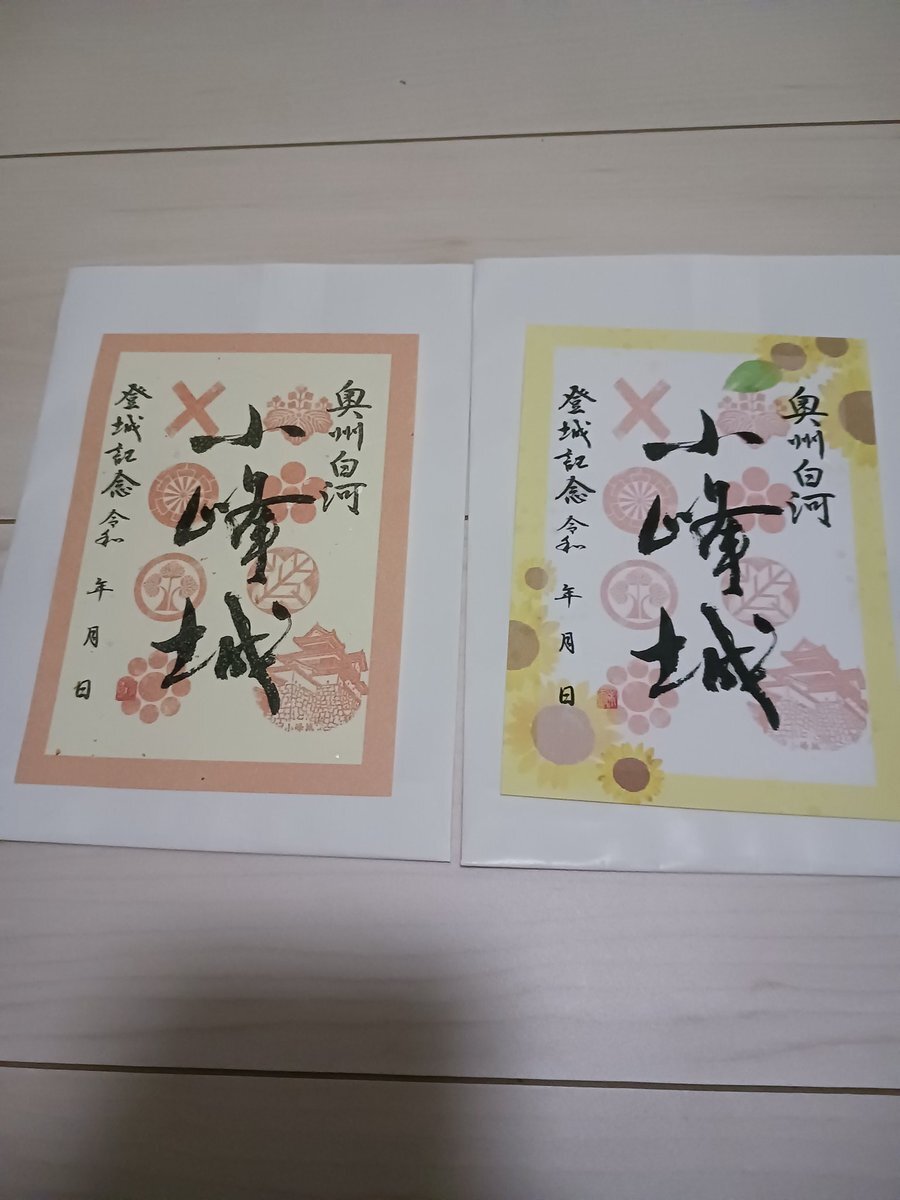 奥州白河
小峰城
登城記念 令和 年 月 日
小峰城
奥州白河
小峰城
登城記念 令和 年 月 日
小峰城